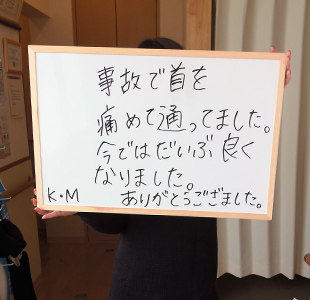 事故で首を
痛めて通ってました。
今ではだいぶ良く
なりました。
K・M ありがとうござました。